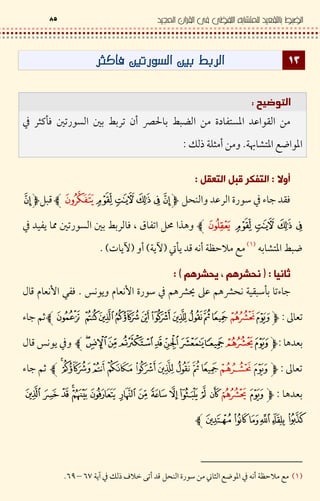 الضبط بالتقعيد للمتشابه اللفظي في القرآن المجيد
٨٥
١٢
الربط بين السورتين فأكثر
التوضيح :
من القواعد المستفادة من الضبط بالحصر أن تربط بين السورتين فأكثر في
المواضع المتشابهة. ومن أمثلة ذلك :
أولا : التفكر قبل التعقل :
فقد جاء في سورة الرعد والنحل ﴿ إِنَّ فِي ذَٰلِكَ لَآيَاتٍ لِّقَوْمٍ يَتَفَكَّرُونَ ﴾ قبل ﴿ إِنَّ
فِي ذَٰلِكَ لَآيَاتٍ لِّقَوْمٍ يَعْقِلُونَ ﴾ وهذا محل اتفاق ، فالربط بين السورتين مما يفيد في
ضبط المتشابه (١) مع ملاحظة أنه قد يأتي (لآية) أو (لآيات) .
ثانيا : ( نحشرهم ، يحشرهم ) :
جاءتا بأسبقية نحشرهم على يحشرهم في سورة الأنعام ويونس . ففي الأنعام قال
تعالى : ﴿ وَيَوْمَ نَحْشُرُهُمْ جَمِيعًا ثُمَّ نَقُولُ لِلَّذِينَ أَشْرَكُوا أَيْنَ شُرَكَاؤُكُمُ الَّذِينَ كُنتُمْ تَزْعُمُونَ ﴾ ثم جاء
بعدها : ﴿ وَيَوْمَ يَحْشُرُهُمْ جَمِيعًا يَا مَعْشَرَ الْجِنِّ قَدِ اسْتَكْثَرْتُم مِّنَ الْإِنسِ ﴾ وفي يونس قال
تعالى : ﴿ وَيَوْمَ نَحْشُرُهُمْ جَمِيعًا ثُمَّ نَقُولُ لِلَّذِينَ أَشْرَكُوا مَكَانَكُمْ أَنتُمْ وَشُرَكَاؤُكُمْ ﴾ ثم جاء
بعدها : ﴿ وَيَوْمَ يَحْشُرُهُمْ كَأَن لَّمْ يَلْبَثُوا إِلَّا سَاعَةً مِّنَ النَّهَارِ يَتَعَارَفُونَ بَيْنَهُمْ قَدْ خَسِرَ الَّذِينَ
كَذَّبُوا بِلِقَاءِ اللَّهِ وَمَا كَانُوا مُهْتَدِينَ ﴾
(١) مع ملاحظة أنه في الموضع الثاني من سورة النحل قد أتى خلاف ذلك في آية ٦٧ – ٦٩.